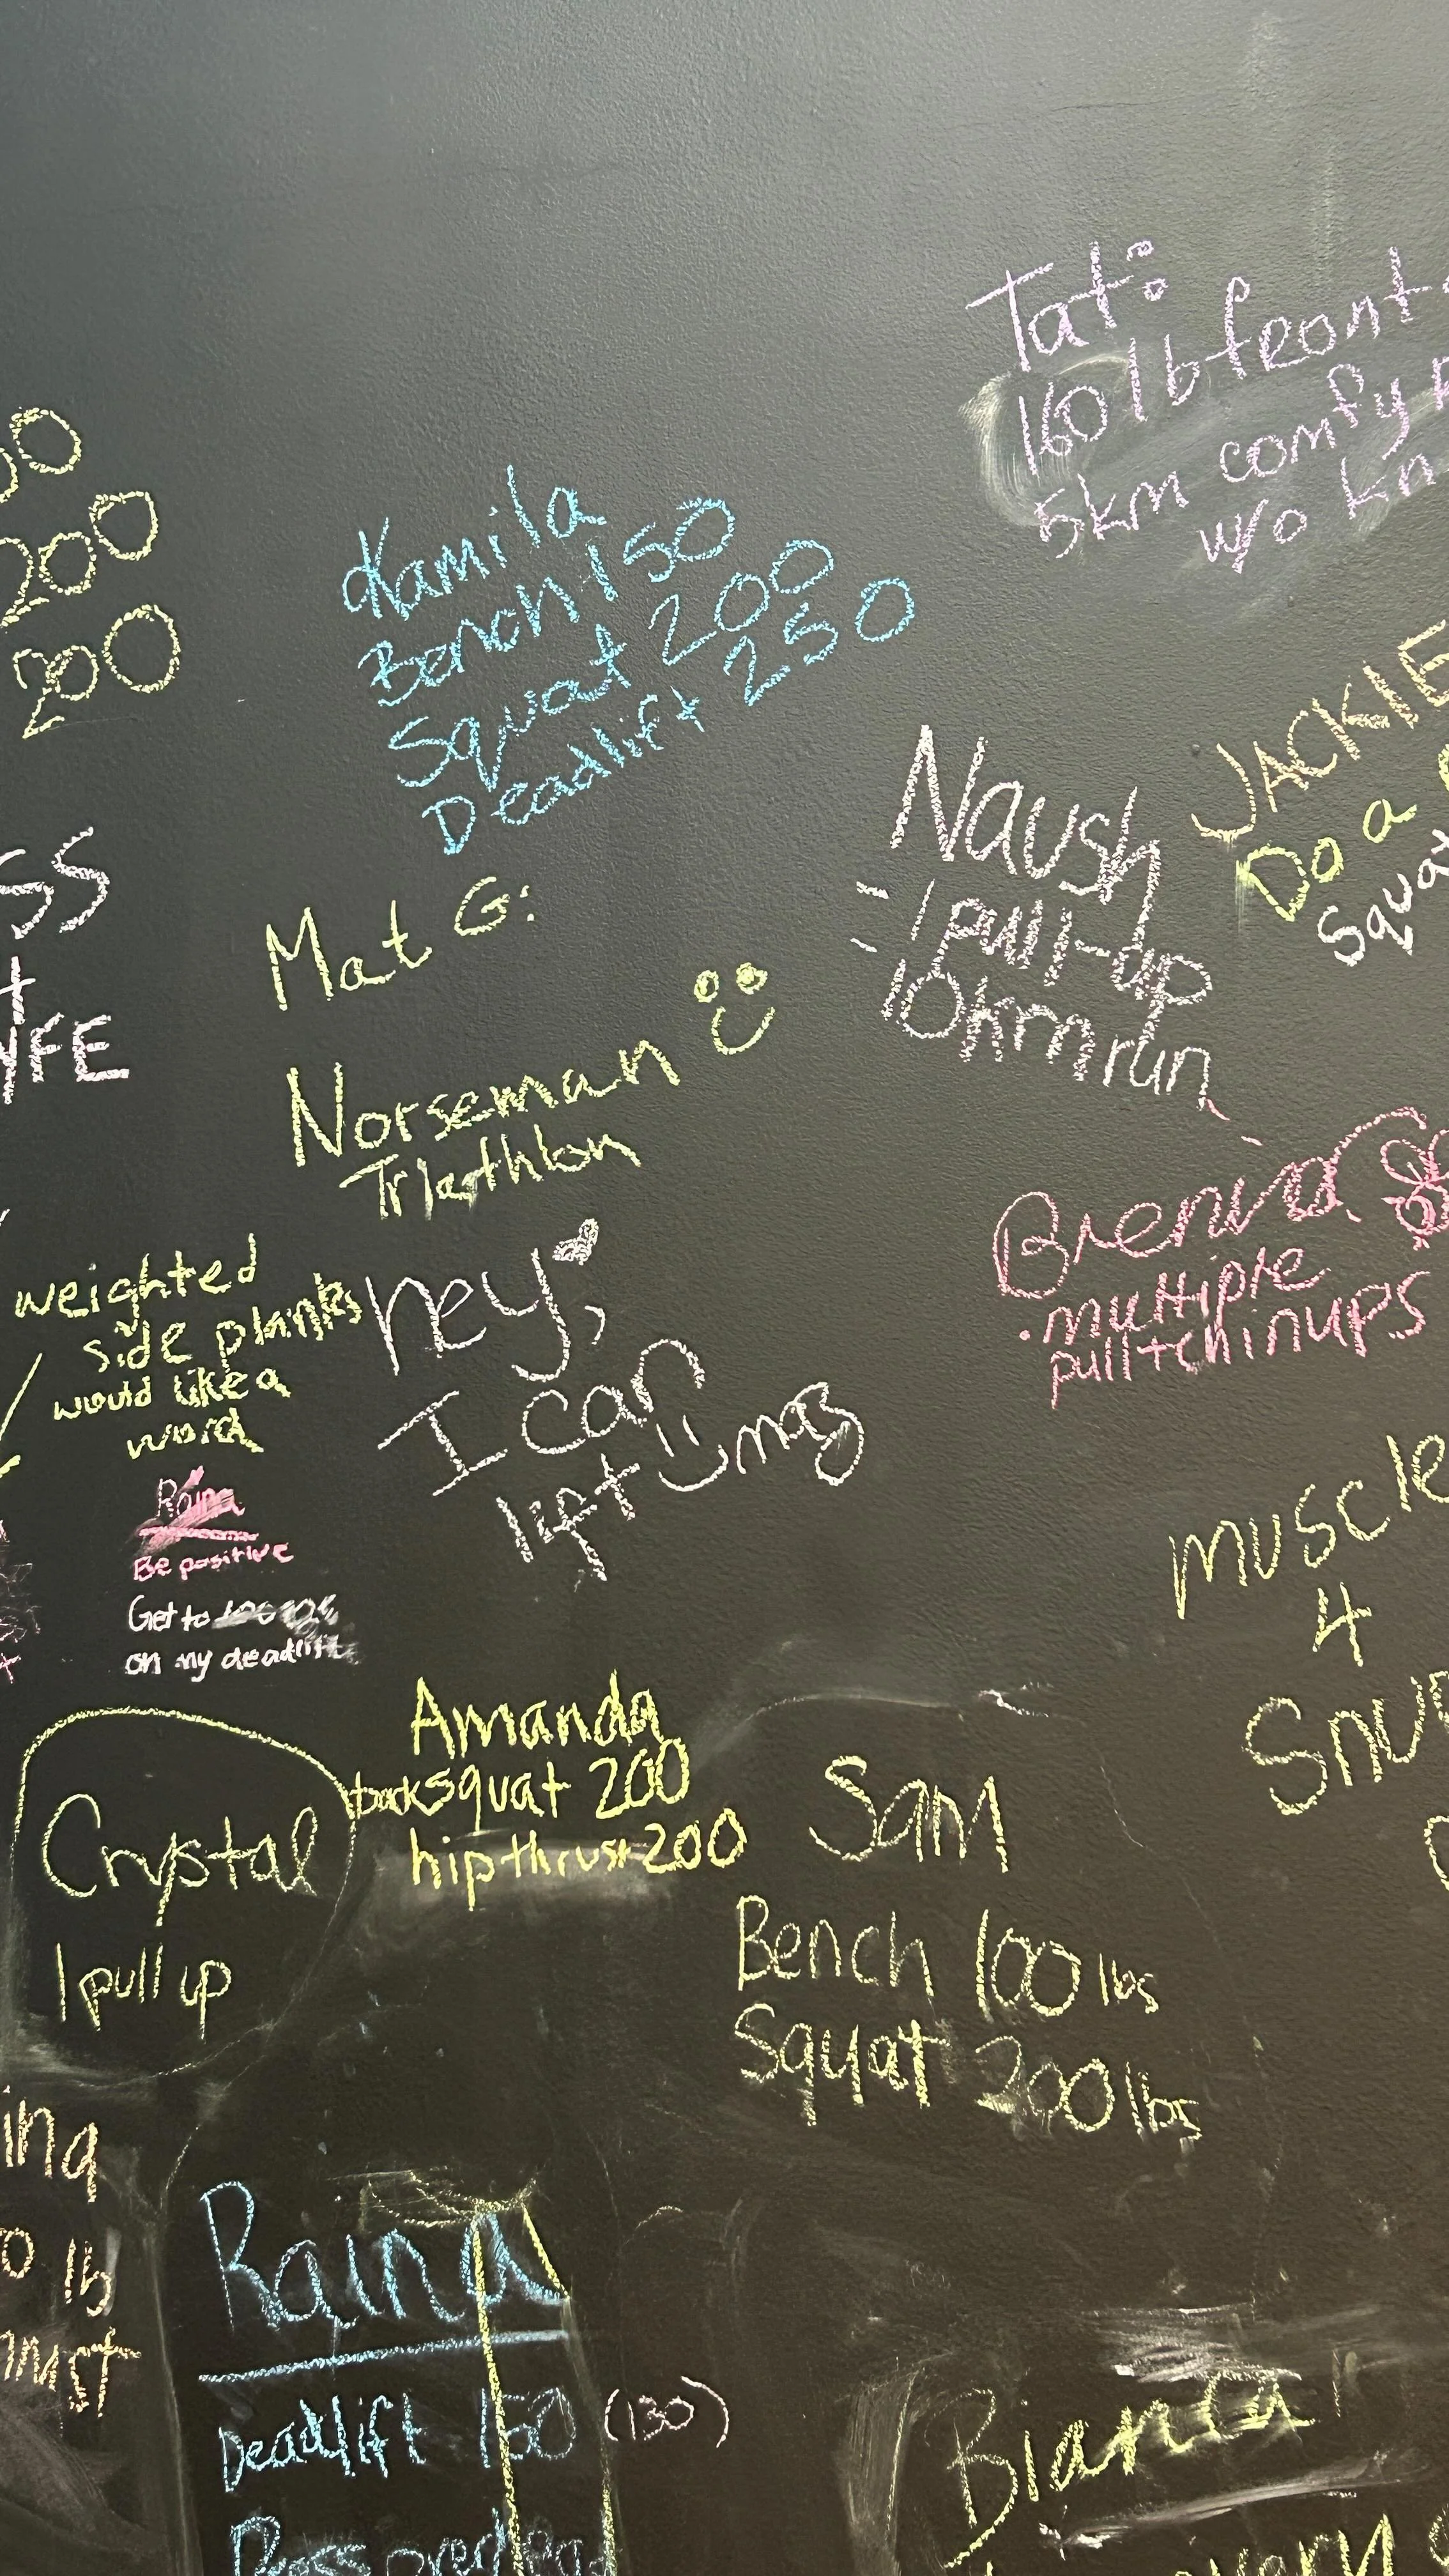 Tat:
160 lb front
5km comfy
w/o kn
00
200
200
Kamila
Bench 150
Squat 200
Deadlift 250
JACKIE
Do a
Squat
Naush
- 1 pull-up
- 10km run
SS
+
Mat G:
Norseman
Triathlon
Brenda
. multiple
pull + chinups
weighted
side planks
would like a
word
hey,
I can
lift u mas
Raina
Be positive
Get to
on my deadlift
muscle
4
Snu
Amanda
back squat 200
hip thrust 200
Crystal
1 pull up
Sam
Bench 100 lbs
Squat 200 lbs
ing
0 lb
hrust
Raina
Deadlift 150 (130)
Press overhead
Bianca